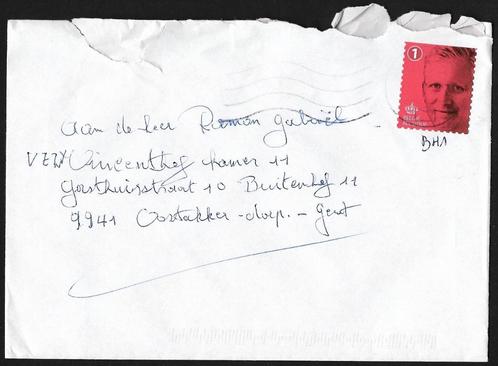 1
Aan de heer Roman Gabriël
VZW Vincenthof kamer 11
Gasthuisstraat 10 Buitenhof 11
9941 Oostakker - dorp. - Gent